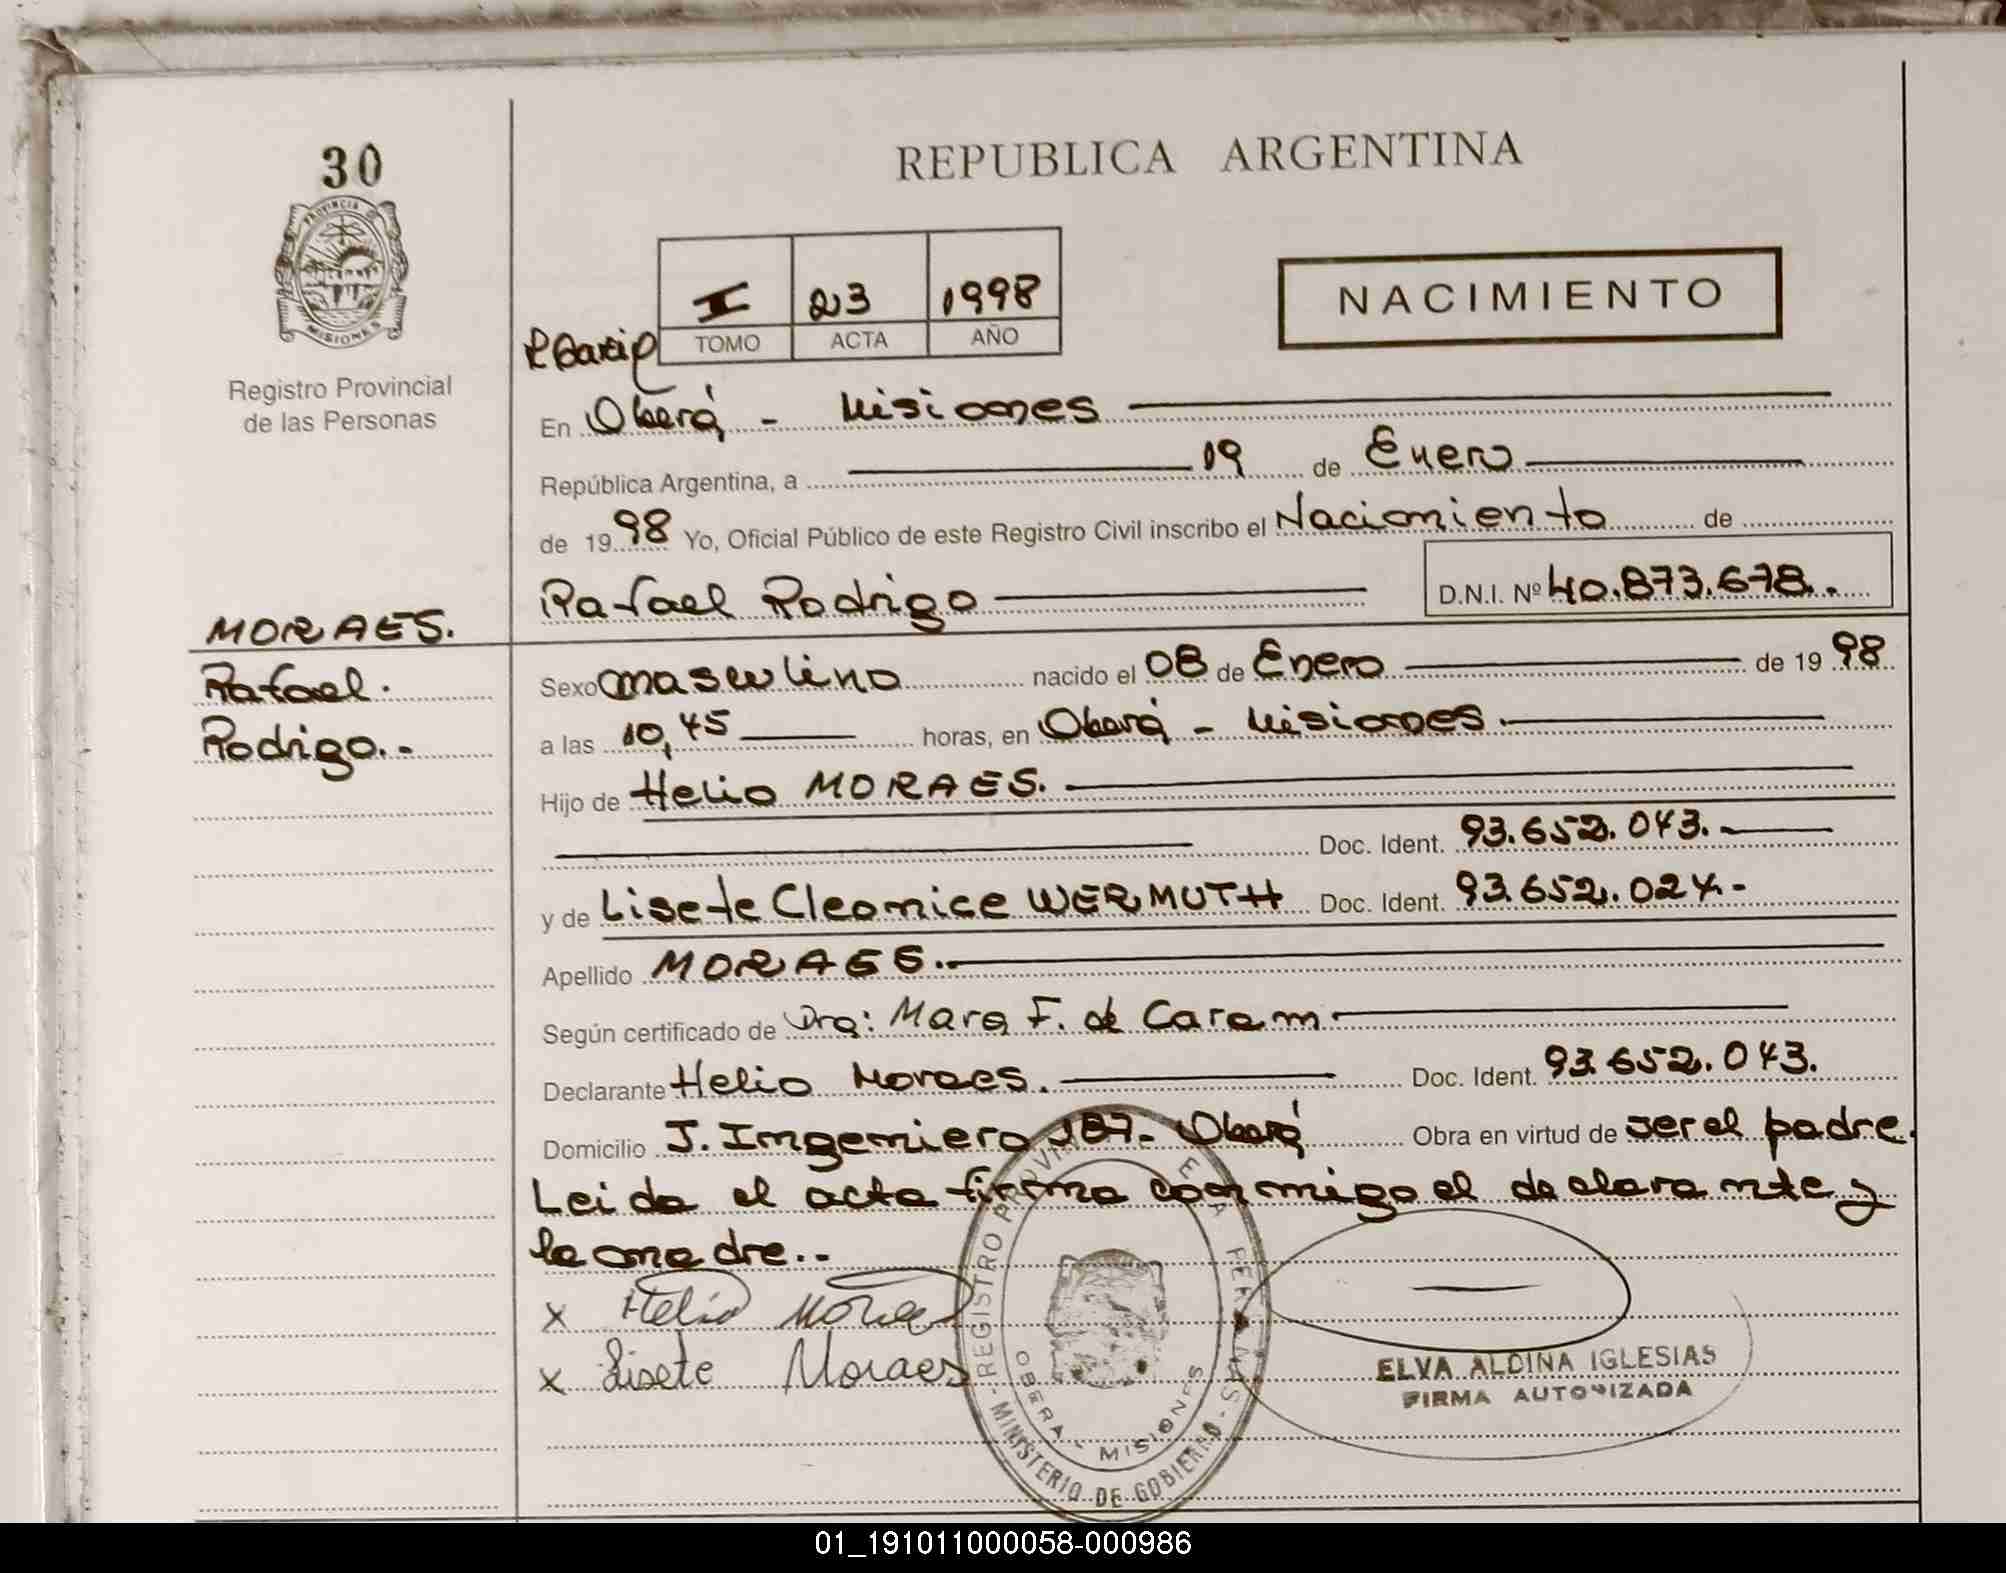 30
PROVINCIA DE
MISIONES
Registro Provincial
de las Personas
REPUBLICA ARGENTINA
I 23 1998
TOMO ACTA AÑO
NACIMIENTO
En Oberá - Misiones
República Argentina, a 19 de Enero
de 1998 Yo, Oficial Público de este Registro Civil inscribo el Nacimiento de
Rafael Rodrigo D.N.I. Nº 40.873.678.
MORAES.
Rafael.
Rodrigo.-
Sexo masculino nacido el 08 de Enero de 1998
a las 10,45 horas, en Oberá - Misiones.
Hijo de Helio MORAES.
Doc. Ident. 93.652.043.-
y de Lisete Cleonice WERMUTH Doc. Ident. 93.652.024.-
Apellido MORAES.-
Según certificado de Dra: Mara F. de Caram.
Declarante Helio Moraes. Doc. Ident. 93.652.043.
Domicilio J. Ingeniero 187- Oberá Obra en virtud de ser el padre.
Leida el acta firma conmigo el declarante y
la madre..
x Helio Moraes
x Lisete Moraes
REGISTRO PROVINCIAL DE LAS PERSONAS
OBERA - MISIONES
- MINISTERIO DE GOBIERNO -
ELVA ALDINA IGLESIAS
FIRMA AUTORIZADA
01_191011000058-000986